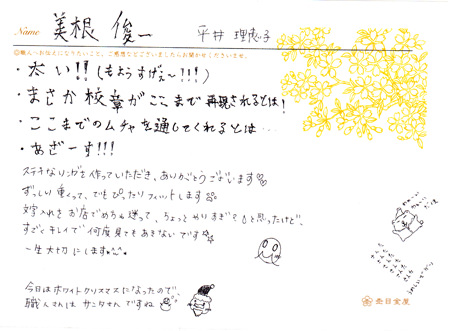 Name 美根 俊一 平井 理恵子
◎職人へお伝えになりたいこと、ご感想などございましたらお聞かせくださいませ。
・太い!!(もようすげぇ〜!!!)
・まさか校章がここまで再現されるとは!
・ここまでのムチャを通してくれるとは…
・あざーす!!!
ステキなリングを作っていただき、ありがとうございます♡
ずっしり重くって、でもぴったりフィットします
文字入れをお店でめちゃ迷って、ちょっとやりすぎ?とも思ったけど、
すごくキレイで何度見てもあきないです☆
一生大切にします^_^。
今日はホワイトクリスマスになったので、
職人さんはサンタさんですね
杢目金屋